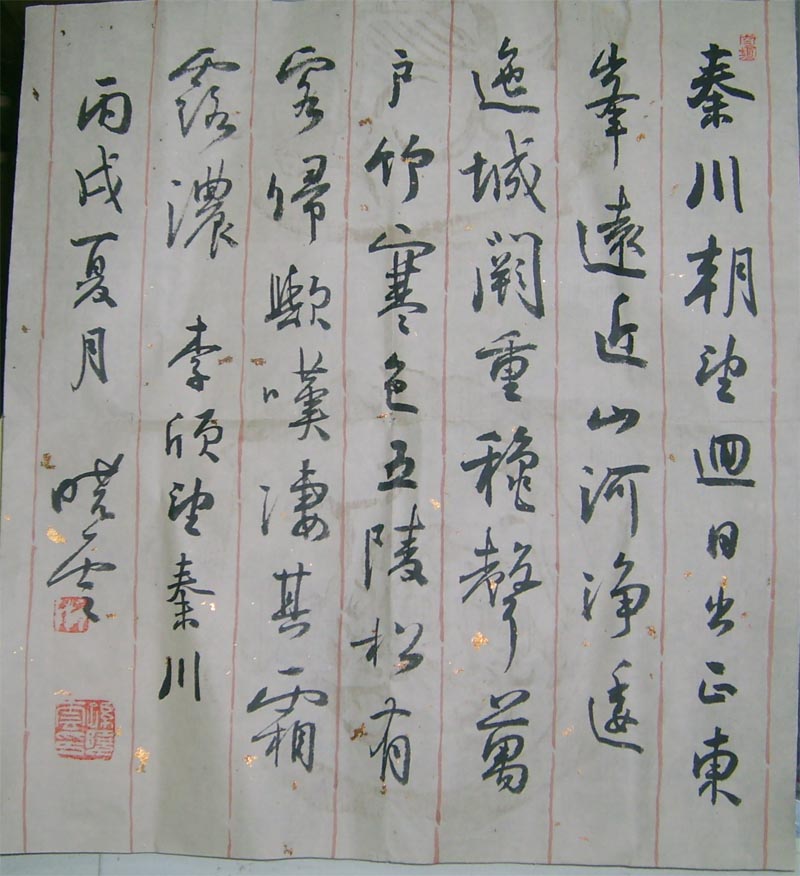 秦川朝望迴日出正東
峯遠近山河淨逶
迤城闕重穐聲萬
户竹寒色五陵松有
客歸歟嘆淒其霜
露濃 李頎望秦川
丙戌夏月 曉雲